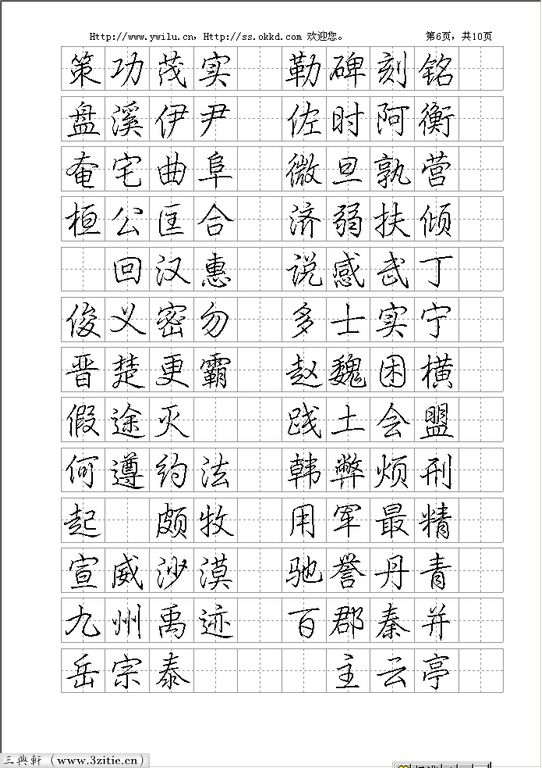 Http://www.ywilu.cn, Http://ss.okkd.com 欢迎您。 第6页，共10页
策功茂实 勒碑刻铭
盘溪伊尹 佐时阿衡
奄宅曲阜 微旦孰营
桓公匡合 济弱扶倾
回汉惠 说感武丁
俊义密勿 多士实宁
晋楚更霸 赵魏困横
假途灭 践土会盟
何遵约法 韩弊烦刑
起 颇牧 用军最精
宣威沙漠 驰誉丹青
九州禹迹 百郡秦并
岳宗泰 主云亭
三典軒（www.3zitie.cn）